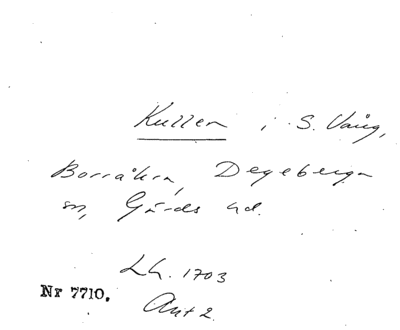 Kullen i S. Vång,
Borråkra, Degeberga
sn, Gärds hd.
Lh. 1703
Nr 7710.
Akt 2.